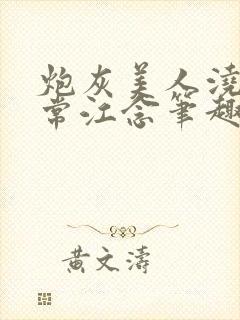 炮灰美人浇
常江念笔趣
黄文涛